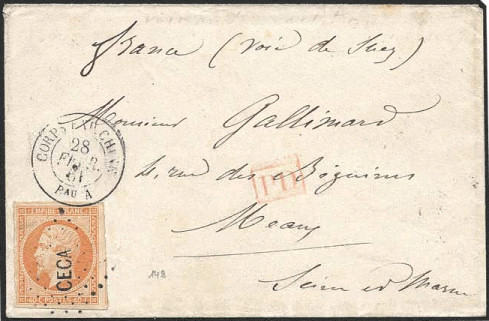 France (voie de Suez)
Monsieur Gallimard
4. rue des Béguines
Meaux
Seine et Marne
CORPS EXP. CHINE
28
FEVR.
61
BAU A
PD
EMPIRE FRANC
CECA
148